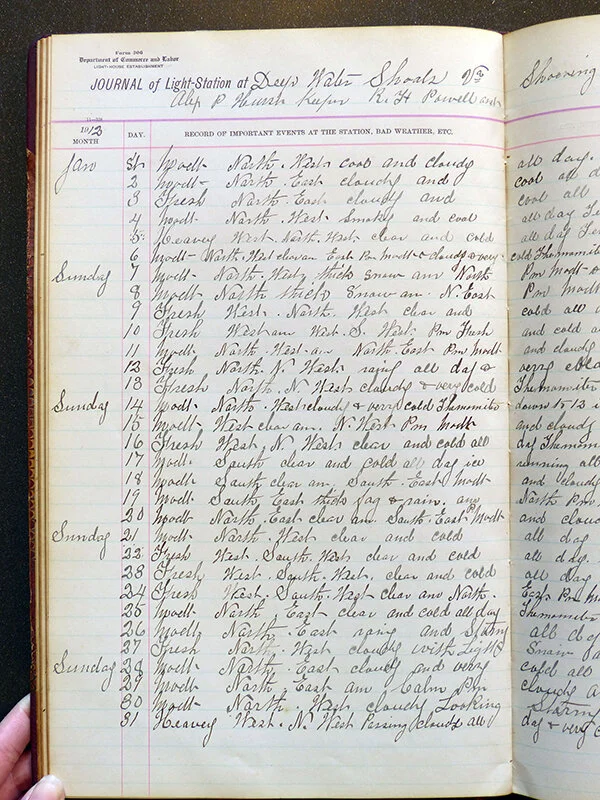 Form 306
Department of Commerce and Labor
LIGHT-HOUSE ESTABLISHMENT
JOURNAL of Light-Station at Deep Water Shoals Va
Shooning
Alex P Hurst Keeper R. H Powell asst
1912
MONTH DAY. RECORD OF IMPORTANT EVENTS AT THE STATION, BAD WEATHER, ETC.
Jan 1st Modt North. West cool and cloudy all day.
2 Modt North. East cloudy and cool all d
3 Fresh North. East cloudy and cool all
4 Modt North. West smokey and cool all day
5 Heavey West. North. West clear and cold all day
6 Modt North. West clear am East Pm Modt & cloudy & very cold Thermomite
Sunday 7 Modt North. West thick snow am North Pm Modt
8 Modt North thick Snow am N. East Pm Modt
9 Fresh West. North. West clear and cold all
10 Fresh West am West. S. West Pm Fresh and cold a
11 Modt North. West am North. East Pm Modt and cloudy
12 Fresh North. N. West rainy all day & very cold
13 Fresh North. N. West cloudy & very cold Thermomiter
Sunday 14 Modt North. West cloudy & very cold Thermomiter down to 12
15 Modt West clear am. N. West Pm Modt and cloudy
16 Fresh West. N. West clear and cold all day Thermom
17 Modt South clear and cold all day ice running all
18 Modt South clear am. South. East Modt and cloudy
19 Modt South. East thick fog & rain. am North Pm
20 Modt North. East clear am. South. East Pm Modt and cloud
Sunday 21 Modt North. West clear and cold all day
22 Fresh West. South. West clear and cold all day.
23 Fresh West. South. West. clear and cold all day
24 Fresh West. South. West clear am North. East Pm
25 Modt North East clear and cold all day Thermomite
26 Modt North. East rainy and Stormy all
27 Fresh North. West cloudy with Light Snow
Sunday 28 Modt North. East cloudy and very cold all
29 Modt North East am, Calm Pm cloudy a
30 Modt North. West cloudy Looking Stormy
31 Heavey West. N. West Passing clouds all day & very